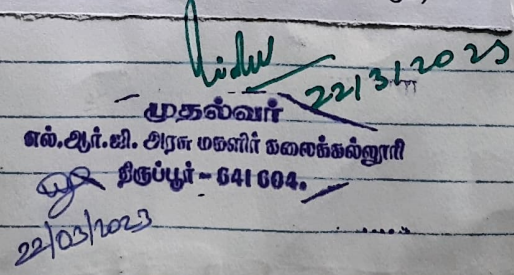 22/3/2023
முதல்வர்
எல்.ஆர்.ஜி. அரசு மகளிர் கலைக்கல்லூரி
திருப்பூர் - 641 604.
22/03/2023